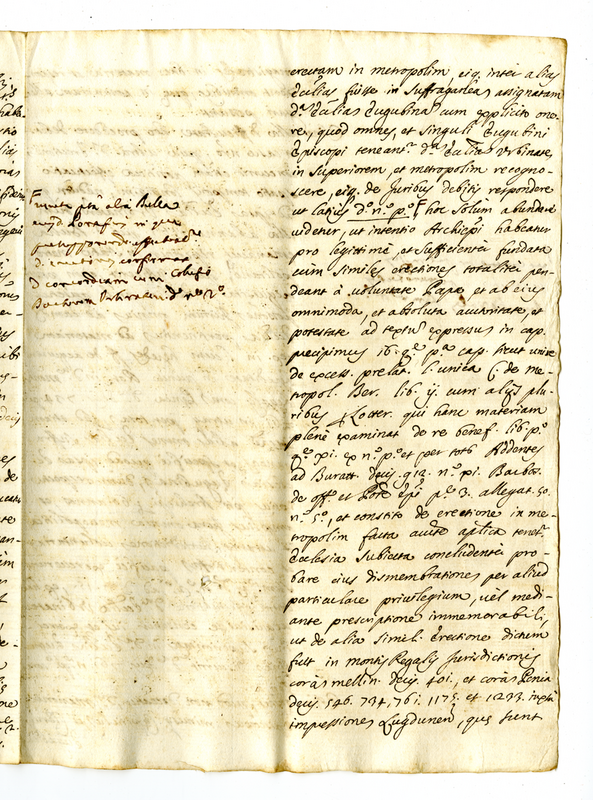 erectam in metropolim, eiq. inter alias
Ecclias fuisse in suffraganeas assignatam
d.ª Eccliã Eugubina cum explicito one-
re, quod omnes, et singuli Eugubini
Episcopi teneant.r d.ª Ecclia Urbinate
in superiorem, et metropolim recogno-
scere, eiq. de Juribus debitis respondere
ut latius d.º n.º p.º hoc solum abunde
videtur, ut intentio Archiepi habeatur
pro legittime, et sufficienter fundata
cum similes erectiones totaliter pen-
deant à voluntate Papæ, et ab eius
omnimoda, et absoluta auctoritate, et
potestate ad textũ expressus in cap.
præcipimus 16. q. p.ª cap. sicut unire
de excess. prelat. l. unica C. de me-
tropol. Ber. lib. ij. cum alijs plu-
ribus Lotter. qui hanc materiam
plenè examinat de re benef. lib. p.º
q. xi. ex n.º p.º et per tot. Addentes
ad Buratt. decis. 912. n.º xi. Barbos.
de off. et Potẽ epi p. 3. allegat. 50.
n.º 5.º, et constito de erectione in me-
tropolim facta aucte aplica tenet.r
Ecclesia subiecta concludenter pro-
bare eius dismembrationes per aliud
particulare privilegium, vel medi-
ante prescriptione immemorabili,
ut de alia simil. Erectione dictum
fuit in montis Regalis Jurisdictionis
corã mellin. decis. 401., et corã Penia
decis. 546. 734, 761. 1175. et 1233. iuxtà
impressiones Lugdunen., quæ sunt
alia Bulla
confirmat